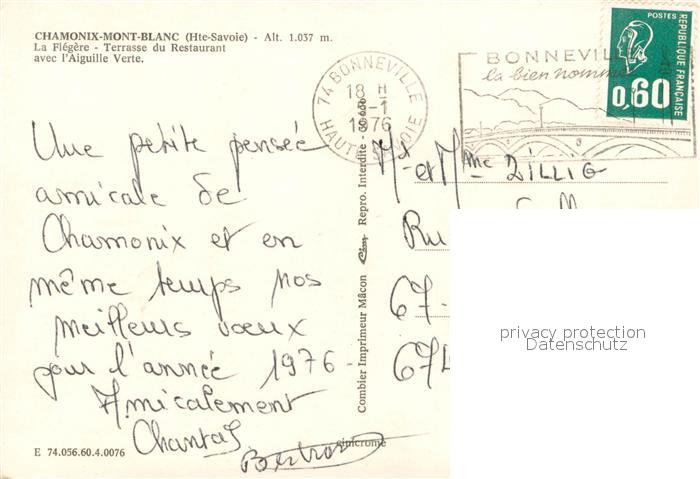 CHAMONIX-MONT-BLANC (Hte-Savoie) - Alt. 1.037 m.
La Flégère - Terrasse du Restaurant
avec l'Aiguille Verte.
Une petite pensée
amicale de
Chamonix et en
même temps nos
meilleurs voeux
pour l'année 1976 -
Amicalement
Chantal
Bertrand
E 74.056.60.4.0076
Combier Imprimeur Mâcon
Cim
Repro. Interdite
cimcrome
74 BONNEVILLE
18 H
1976
HAUTE SAVOIE
BONNEVILLE
la bien nommée
POSTES
REPUBLIQUE FRANÇAISE
0,60
Mr et Mme ZILLIG
Ru
67-
674
privacy protection
Datenschutz